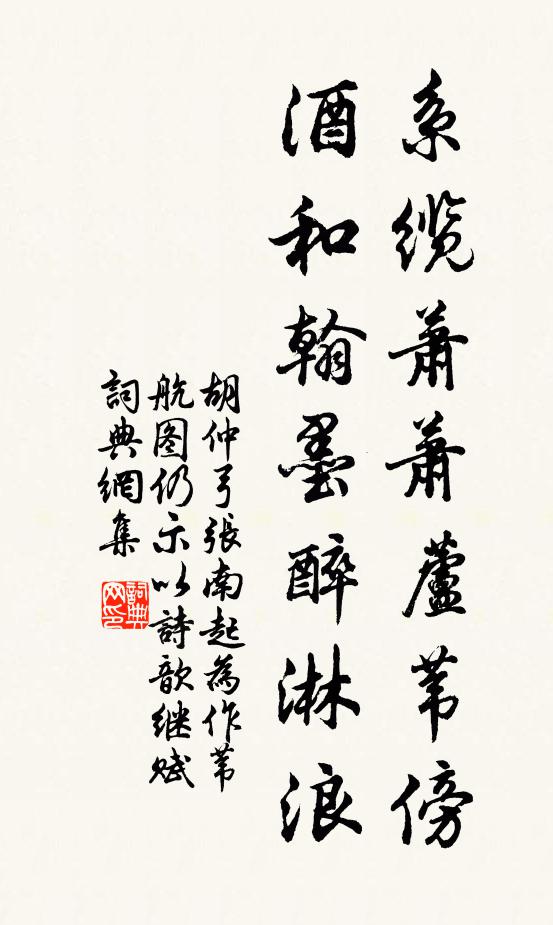 系缆萧萧蘆苇傍
酒和翰墨醉淋浪
胡仲弓張南起為作苇
航图仍示以詩歌继赋
詞典網集
詞典
网印